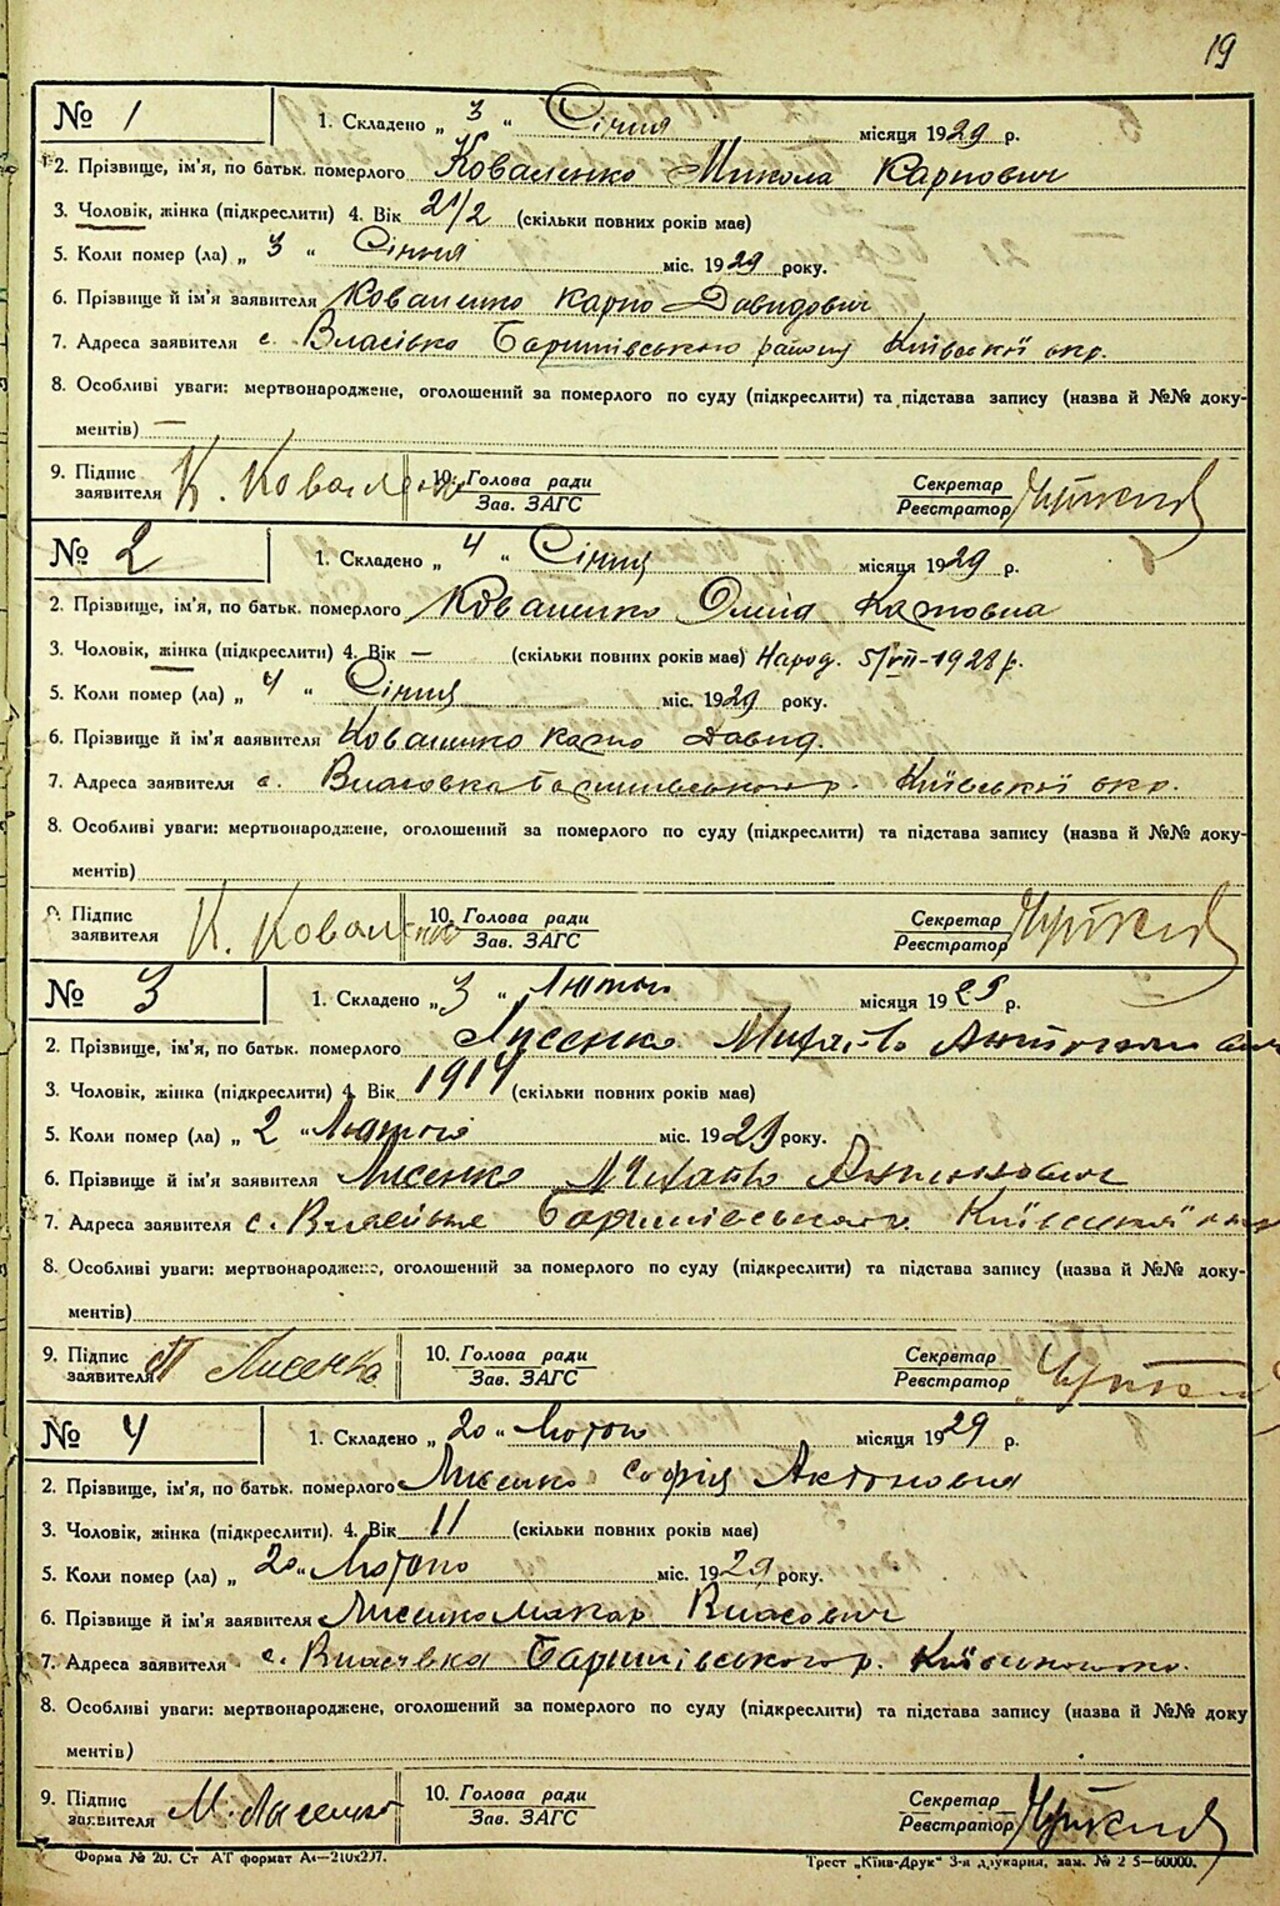 19
№ 1 1. Складено „ 3 “ Січня місяця 1929 р.
2. Прізвище, ім'я, по батьк. померлого Коваленко Микола Карпович
3. Чоловік, жінка (підкреслити) 4. Вік 2 1/2 (скільки повних років має)
5. Коли помер (ла) „ 3 “ Січня міс. 1929 року.
6. Прізвище й ім'я заявителя Коваленко Карпо Давидович
7. Адреса заявителя с. Власівка Баришівського району Київської окр.
8. Особливі уваги: мертвонароджене, оголошений за померлого по суду (підкреслити) та підстава запису (назва й №№ доку-
ментів) —
9. Підпис заявителя К. Коваленко 10. Голова ради Зав. ЗАГС Секретар Реєстратор
№ 2 1. Складено „ 4 “ Січня місяця 1929 р.
2. Прізвище, ім'я, по батьк. померлого Коваленко Карповна
3. Чоловік, жінка (підкреслити) 4. Вік — (скільки повних років має) Народ. 5/VII-1928 р.
5. Коли помер (ла) „ 4 “ Січня міс. 1929 року.
6. Прізвище й ім'я заявителя Коваленко Карпо Давид.
7. Адреса заявителя с. Власовка Баришівського р. Київської окр.
8. Особливі уваги: мертвонароджене, оголошений за померлого по суду (підкреслити) та підстава запису (назва й №№ доку-
ментів)
9. Підпис заявителя К. Коваленко 10. Голова ради Зав. ЗАГС Секретар Реєстратор
№ 3 1. Складено „ 3 “ Лютого місяця 1929 р.
2. Прізвище, ім'я, по батьк. померлого Лисенко Михайло
3. Чоловік, жінка (підкреслити) 4. Вік 1914 (скільки повних років має)
5. Коли помер (ла) „ 2 “ Лютого міс. 1929 року.
6. Прізвище й ім'я заявителя Лисенко
7. Адреса заявителя с. Власівка Баришівського р. Київської
8. Особливі уваги: мертвонароджене, оголошений за померлого по суду (підкреслити) та підстава запису (назва й №№ доку-
ментів)
9. Підпис заявителя Лисенко 10. Голова ради Зав. ЗАГС Секретар Реєстратор
№ 4 1. Складено „ 20 “ Лютого місяця 1929 р.
2. Прізвище, ім'я, по батьк. померлого Лисенко Софія Антоновна
3. Чоловік, жінка (підкреслити). 4. Вік 11 (скільки повних років має)
5. Коли помер (ла) „ 20 “ Лютого міс. 1929 року.
6. Прізвище й ім'я заявителя Лисенко Макар Власович
7. Адреса заявителя с. Власівка Баришівського р.
8. Особливі уваги: мертвонароджене, оголошений за померлого по суду (підкреслити) та підстава запису (назва й №№ доку
ментів)
9. Підпис заявителя М. Лысенко 10. Голова ради Зав. ЗАГС Секретар Реєстратор
Форма № 20. Ст АТ формат А4—210х297. Трест „Київ-Друк“ 3-я друкарня, зам. № 2 5—60000.